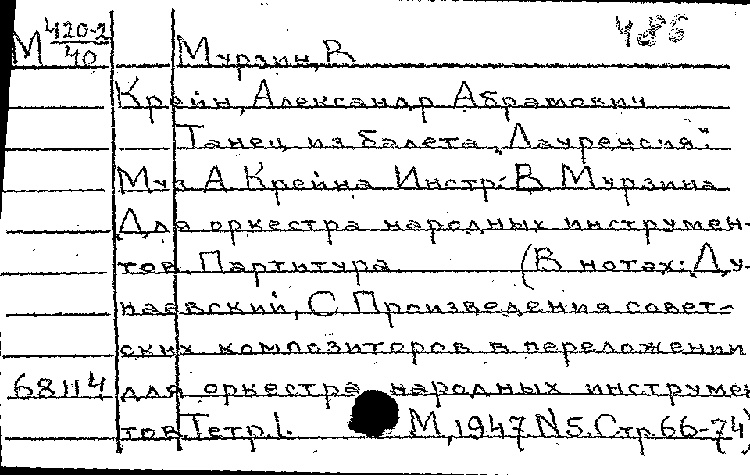 486
М 420-2/40 Мурзин, В
Крейн, Александр Абрамович
Танец из балета „Лауренсия".
Муз А. Крейна Инстр: В Мурзина
Для оркестра народных инструмен-
тов. Партитура (В нотах: Ду-
наевский, С Произведения совет-
ских композиторов в переложении
68114 для оркестра народных инструмен
тов. Тетр. 1. М, 1947. N5. Стр. 66-74)